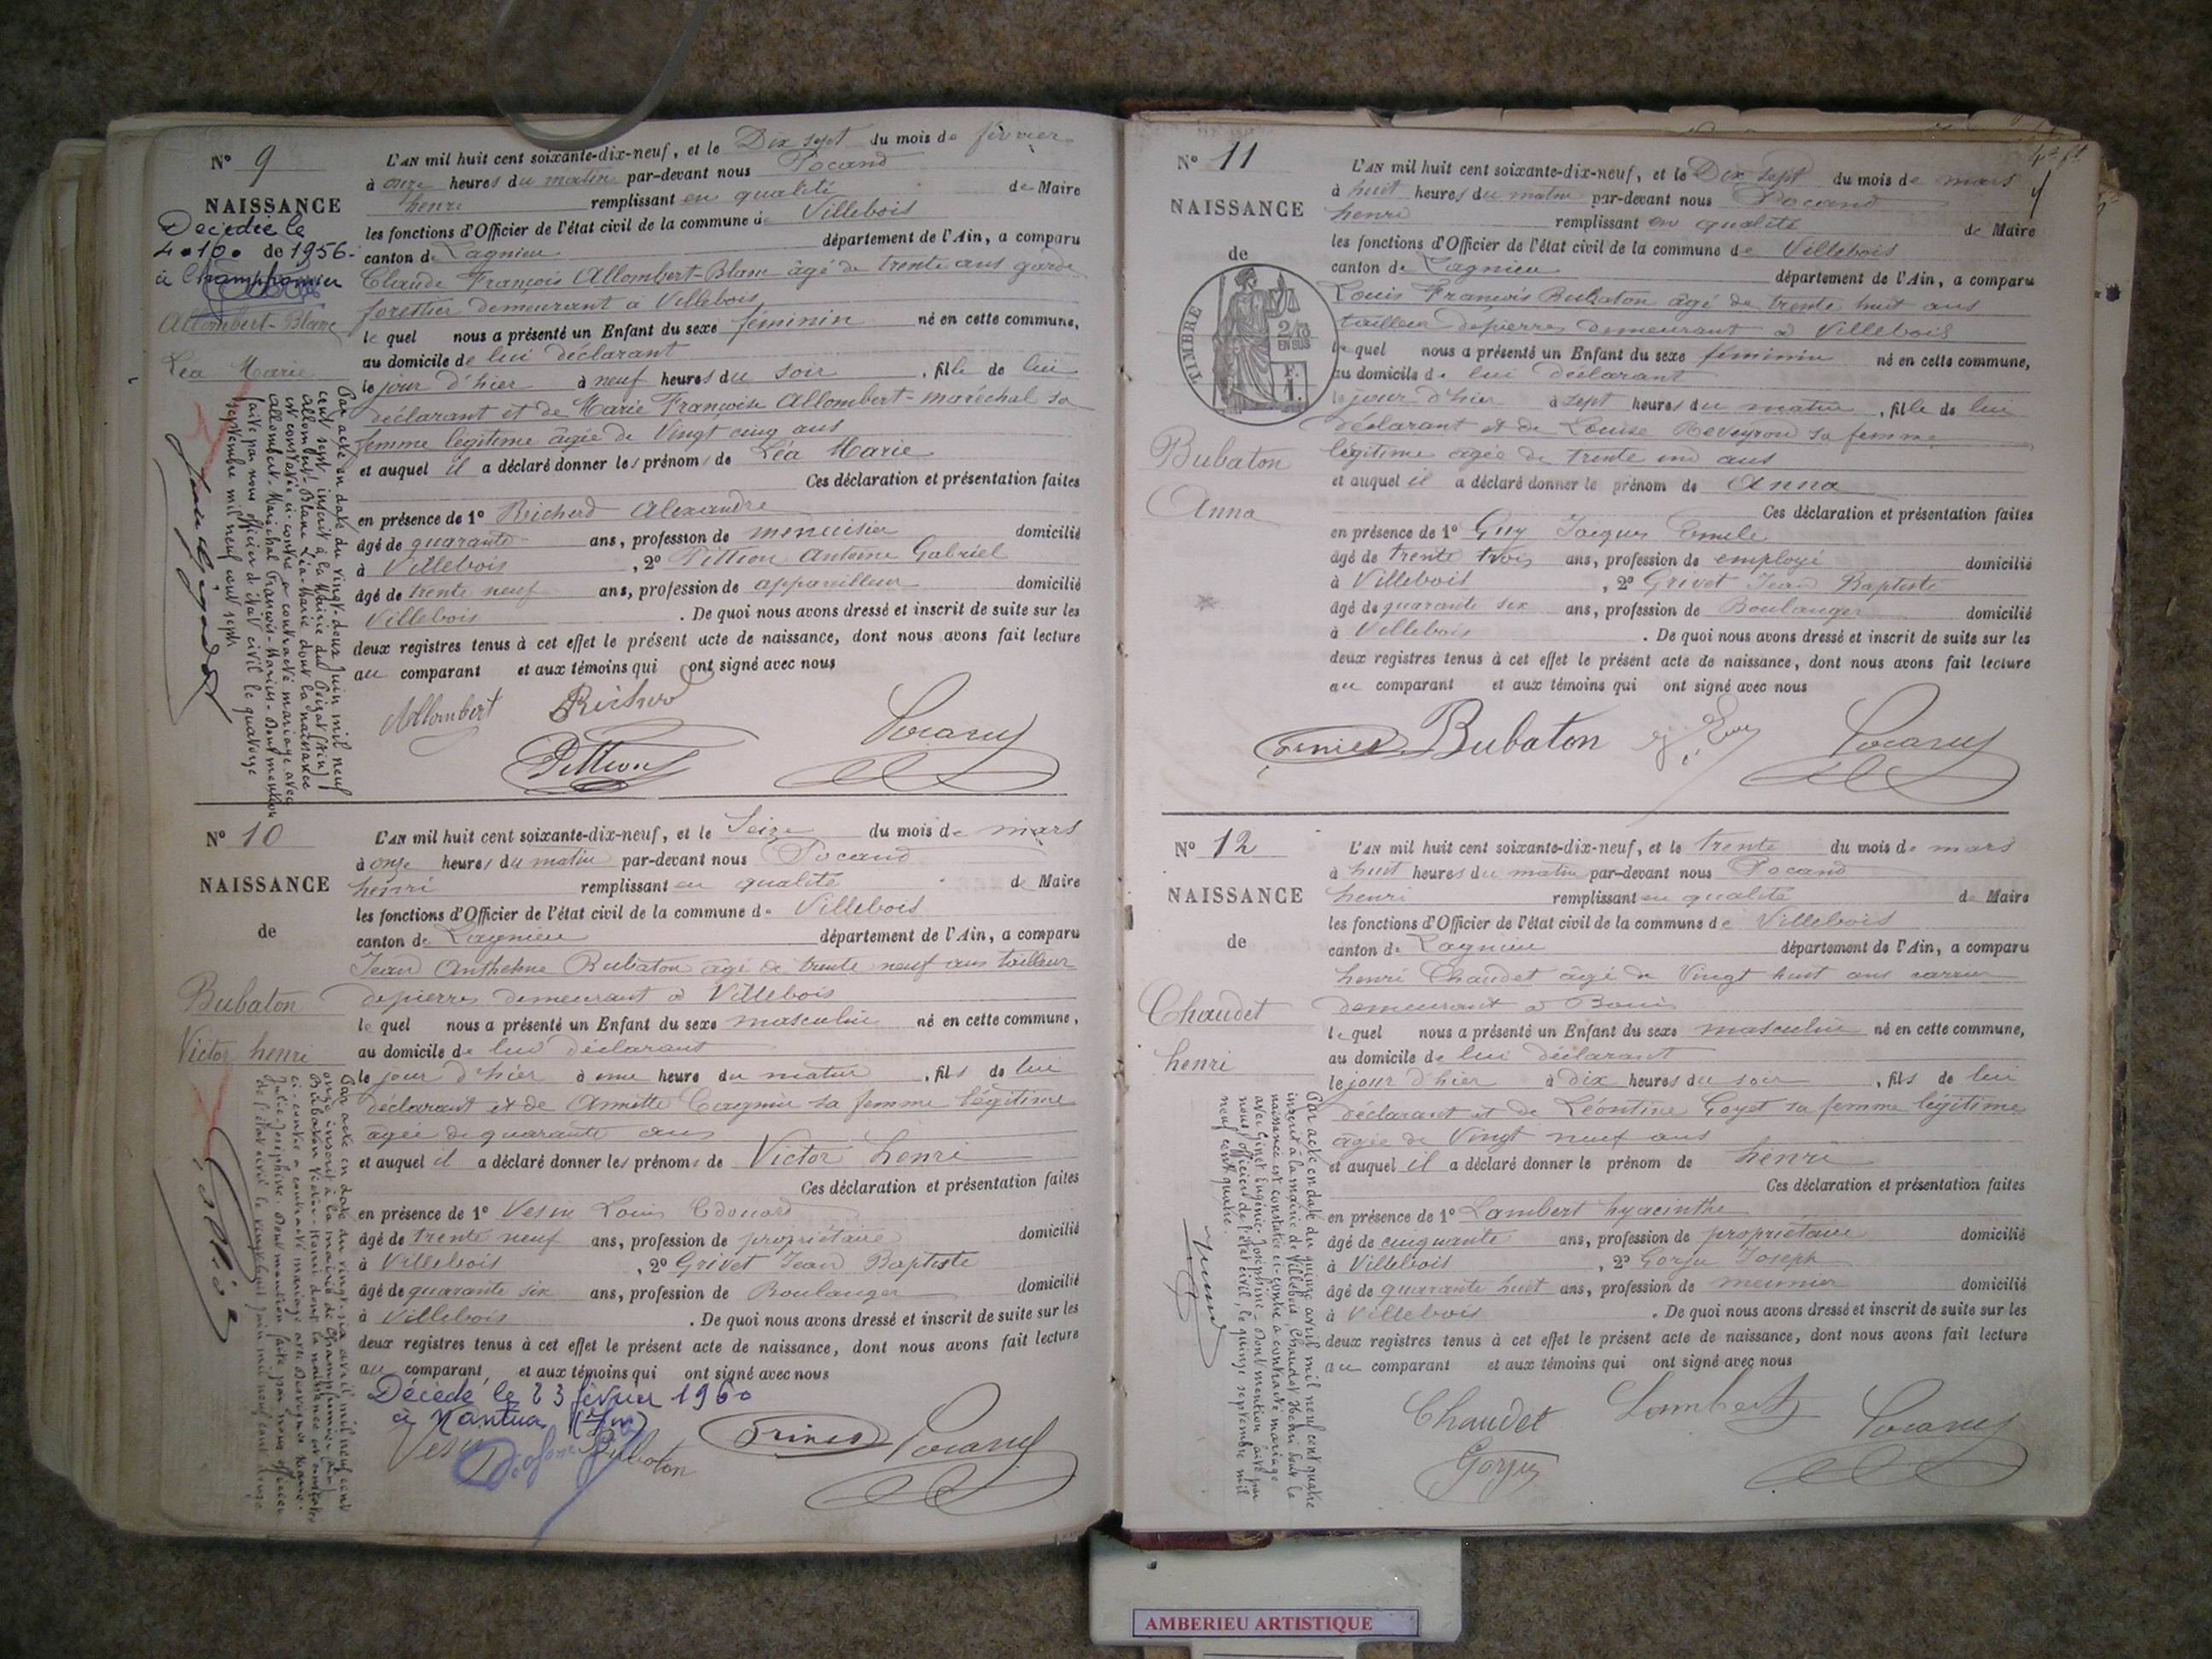 N° 9
NAISSANCE
Décédée le
4.10. de 1956.
à Champfromier
Allombert-Blanc
Léa Marie
L'AN mil huit cent soixante-dix-neuf, et le Dix sept du mois de février
à onze heures du matin par-devant nous Pocand
henri remplissant en qualité de Maire
les fonctions d'Officier de l'état civil de la commune de Villebois
canton de Lagnieu département de l'Ain, a comparu
Claude François Allombert-Blanc âgé de trente ans garde
forestier demeurant à Villebois
lequel nous a présenté un Enfant du sexe féminin né en cette commune,
au domicile de lui déclarant
le jour d'hier à neuf heures du soir, fille de lui
déclarant et de Marie Françoise Allombert-maréchal sa
femme légitime âgée de Vingt cinq ans
et auquel il a déclaré donner les prénoms de Léa Marie
Ces déclaration et présentation faites
en présence de 1° Richerd Alexandre
âgé de quarante ans, profession de menuisier domicilié
à Villebois, 2° Pittion Antoine Gabriel
âgé de trente neuf ans, profession de appareilleur domicilié
Villebois. De quoi nous avons dressé et inscrit de suite sur les
deux registres tenus à cet effet le présent acte de naissance, dont nous avons fait lecture
au comparant et aux témoins qui ont signé avec nous
Allombert Richerd
Pittion Pocand
Par acte en date du vingt-deux Juin mil neuf
cent sept inscrit à la Mairie du Poizat (Ain)
Allombert-Blanc Léa-Marie dont la naissance
est constatée ci-contre a contracté mariage avec
Allombert-Maréchal François-Marius. Dont mention
faite par nous officier de l'état civil le quatorze
septembre mil neuf cent sept
N° 10
NAISSANCE
de
Bubaton
Victor henri
L'AN mil huit cent soixante-dix-neuf, et le Seize du mois de mars
à onze heures du matin par-devant nous Pocand
henri remplissant en qualité de Maire
les fonctions d'Officier de l'état civil de la commune de Villebois
canton de Lagnieu département de l'Ain, a comparu
Jean Anthelme Bubaton âgé de trente neuf ans tailleur
de pierres demeurant à Villebois
lequel nous a présenté un Enfant du sexe masculin né en cette commune,
au domicile de lui déclarant
le jour d'hier à une heure du matin, fils de lui
déclarant et de Annette Cagnin sa femme légitime
âgée de quarante ans
et auquel il a déclaré donner les prénoms de Victor henri
Ces déclaration et présentation faites
en présence de 1° Vesin Louis Edouard
âgé de trente neuf ans, profession de propriétaire domicilié
à Villebois, 2° Grivet Jean Baptiste
âgé de quarante six ans, profession de Boulanger domicilié
à Villebois. De quoi nous avons dressé et inscrit de suite sur les
deux registres tenus à cet effet le présent acte de naissance, dont nous avons fait lecture
au comparant et aux témoins qui ont signé avec nous
Décédé le 23 février 1960
à Nantua (Ain)
Vesin Bubaton Pocand
Par acte en date du vingt-six avril mil neuf cent
onze inscrit à la mairie de Champfromier (Ain)
Bubaton Victor-Henri dont la naissance est constatée
ci-contre a contracté mariage avec
Julie-Joséphine. Dont mention faite par nous officier
de l'état civil le vingt huit juin mil neuf cent onze
N° 11
NAISSANCE
de
TIMBRE
2/10
EN SUS
F.
1.
Bubaton
Anna
L'AN mil huit cent soixante-dix-neuf, et le Dix sept du mois de mars
à huit heures du matin par-devant nous Pocand
henri remplissant en qualité de Maire
les fonctions d'Officier de l'état civil de la commune de Villebois
canton de Lagnieu département de l'Ain, a comparu
Louis François Bubaton âgé de trente huit ans
tailleur de pierres demeurant à Villebois
lequel nous a présenté un Enfant du sexe féminin né en cette commune,
au domicile de lui déclarant
le jour d'hier à sept heures du matin, fille de lui
déclarant et de Louise Reveyron sa femme
légitime âgée de trente un ans
et auquel il a déclaré donner le prénom de Anna
Ces déclaration et présentation faites
en présence de 1° Guy Jacques Emile
âgé de trente trois ans, profession de employé domicilié
à Villebois, 2° Grivet Jean Baptiste
âgé de quarante six ans, profession de Boulanger domicilié
à Villebois. De quoi nous avons dressé et inscrit de suite sur les
deux registres tenus à cet effet le présent acte de naissance, dont nous avons fait lecture
au comparant et aux témoins qui ont signé avec nous
Bubaton Pocand
N° 12
NAISSANCE
de
Chaudet
henri
L'AN mil huit cent soixante-dix-neuf, et le trente du mois de mars
à huit heures du matin par-devant nous Pocand
henri remplissant en qualité de Maire
les fonctions d'Officier de l'état civil de la commune de Villebois
canton de Lagnieu département de l'Ain, a comparu
henri Chaudet âgé de Vingt huit ans carrier
demeurant à Bouis
lequel nous a présenté un Enfant du sexe masculin né en cette commune,
au domicile de lui déclarant
le jour d'hier à dix heures du soir, fils de lui
déclarant et de Léontine Goyet sa femme légitime
âgée de Vingt neuf ans
et auquel il a déclaré donner le prénom de henri
Ces déclaration et présentation faites
en présence de 1° Lambert hyacinthe
âgé de cinquante ans, profession de propriétaire domicilié
à Villebois, 2° Gorju Joseph
âgé de quarante huit ans, profession de meunier domicilié
à Villebois. De quoi nous avons dressé et inscrit de suite sur les
deux registres tenus à cet effet le présent acte de naissance, dont nous avons fait lecture
au comparant et aux témoins qui ont signé avec nous
Chaudet Lambert Pocand
Gorju
Par acte en date du quinze avril mil neuf cent quatre
inscrit à la mairie de Villebois, Chaudet Henri dont la
naissance est constatée ci-contre a contracté mariage
avec Ginet Eugénie Joséphine. Dont mention faite par
nous officier de l'état civil, le quinze septembre mil
neuf cent quatre.
AMBERIEU ARTISTIQUE